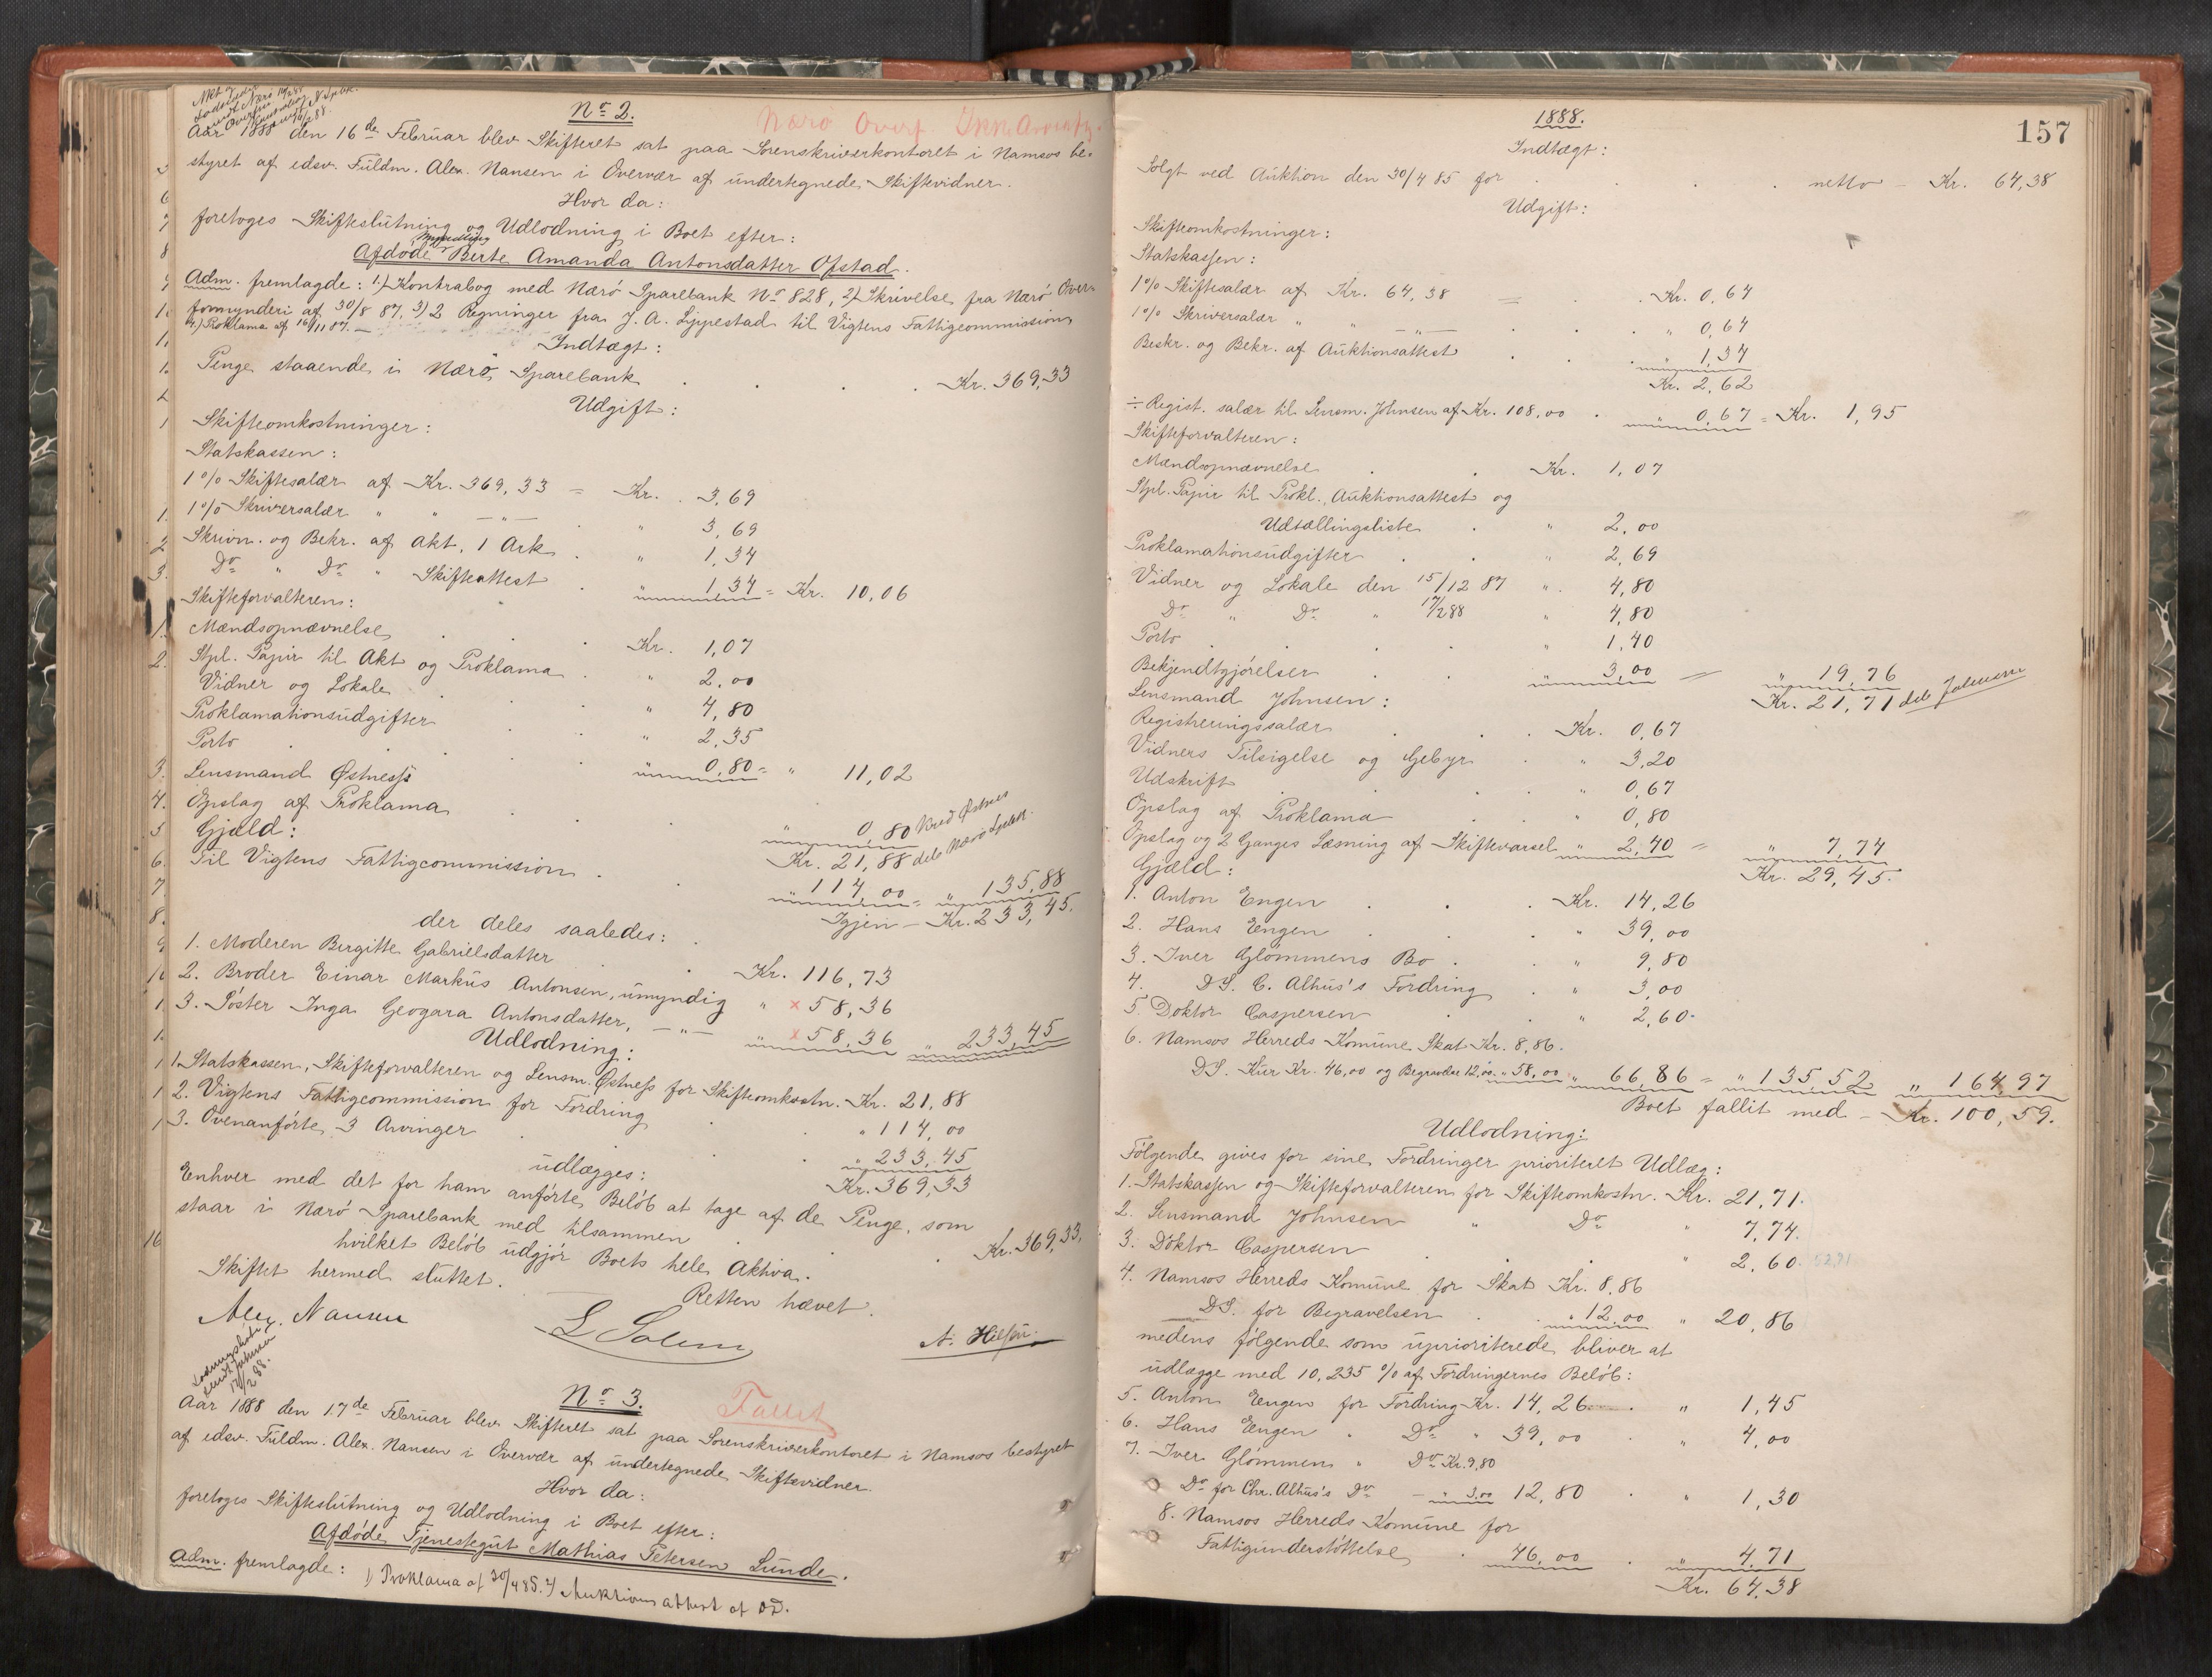 No 2.
Nærø Overf.
Aar 1888 den 16de Februar blev Skifteret sat paa Sorenskriverkontoret i Namsos be-
styret af edsv. Fuldm. Alex. Nansen i Overvær af undertegnede Skiftevidner.
Hvor da:
foretoges Skifteslutning og Udlodning i Boet efter:
Afdøde Myndling Berte Amanda Antonsdatter Ofstad.
Adm. fremlagde: 1.) Kontrabog med Nærø Sparebank No 828, 2) Skrivelse fra Nærø Over-
formynderi af 30/8 87, 3) 2 Regninger fra J. A. Lippestad til Vigtens Fattigcommission
4.) Proklama af 16/11 87. —
Indtægt:
Penge staaende i Nærø Sparebank . . . . Kr. 369,33
Udgift:
Skifteomkostninger:
Statskassen:
1% Skiftesalær af Kr. 369,33 = Kr. 3,69
1% Skriversalær " " —"— " 3,69
Skrivn. og Bekr. af Akt, 1 Ark . " 1,34
Do " Do " Skifteattest " 1,34 = Kr. 10,06
Skifteforvalteren:
Mændsopnævnelse . . Kr. 1,07
Stpl. Papir til Akt og Proklama . " 2,00
Vidner og Lokale . . " 4,80
Proklamationsudgifter . . " 2,35
Porto . . . " 0,80 = " 11,02
Lensmand Østness
Opslag af Proklama . . " 0,80 Kred Østnes
Kr. 21,88 deb Nærø Spbk.
Gjæld:
Til Vigtens Fattigcommission . . " 114,00 = " 135,88
Igjen — Kr. 233,45.
der deles saaledes:
1. Moderen Birgitte Gabrielsdatter . . Kr. 116,73
2. Broder Einar Markus Antonsen, umyndig " x 58,36
3. Søster Inga Geogara Antonsdatter, —"— " x 58,36 " 233,45
Udlodning:
1. Statskassen, Skifteforvalteren og Lensm. Østness for Skifteomkostn. Kr. 21,88
2. Vigtens Fattigcommission for Fordring . . " 114,00
3. Ovenanførte 3 Arvinger . . " 233,45
Kr. 369,33
udlægges:
Enhver med det for ham anførte Beløb at tage af de Penge, som
staar i Nærø Sparebank med tilsammen . . Kr. 369,33,
hvilket Beløb udgjør Boets hele Aktiva.
Skiftet hermed sluttet. Retten hævet.
Alex. Nansen
L Solem
No 3.
Fallit
Aar 1888 den 17de Februar blev Skifteret sat paa Sorenskriverkontoret i Namsos bestyret
af edsv. Fuldm. Alex. Nansen i Overvær af undertegnede Skiftevidner.
Hvor da:
foretoges Skifteslutning og Udlodning i Boet efter:
Afdøde Tjenestegut Mathias Petersen Lunde.
Adm. fremlagde: 1) Proklama af 30/4 85. 2) Auktions attest af DD.
1888.
157
Indtægt:
Solgt ved Auktion den 30/4 85 for . . . netto — Kr. 64,38
Udgift:
Skifteomkostninger:
Statskassen:
1% Skiftesalær af Kr. 64,38 = . . Kr. 0,64
1% Skriversalær " " —"— . . " 0,64
Beskr. og Bekr. af Auktionsattest . . " 1,34
Kr. 2,62
÷ Regist. salær til Lensm. Johnsen af Kr. 108,00 . " 0,67 = Kr. 1,95
Skifteforvalteren:
Mændsopnævnelse . . Kr. 1,07
Stpl. Papir til Prokl., Auktionsattest og
Udtællingsliste . " 2,00
Proklamationsudgifter . . " 2,69
Vidner og Lokale den 15/12 87 " 4,80
Do " Do " 17/2 88 " 4,80
Porto . . . " 1,40
Bekjendtgjørelser . . " 3,00 — " 19,76
Kr. 21,71
Lensmand Johnsen:
Registreringssalær . . Kr. 0,67
Vidners Tilsigelse og Gebyr . " 3,20
Udskrift . . " 0,67
Opslag af Proklama . . " 0,80
Opslag og 2 Ganges Læsning af Skiftevarsel " 2,40 = " 7,74
Kr. 29,45.
Gjæld:
1. Anton Engen . . Kr. 14,26
2. Hans Engen . . " 39,00
3. Iver Glømmens Bo . " 9,80
4. DS. C. Alhus's Fordring . " 3,00
5. Doktor Caspersen . " 2,60.
6. Namsos Herreds Komune Skat Kr. 8,86.
DS. Kur Kr. 46,00 og Begravelse 12,00 " 58,00 " 66,86 = " 135,52 " 164,97
Boet fallit med — Kr. 100,59.
Udlodning:
Følgende gives for sine Fordringer prioriteret Udlæg:
1. Statskassen og Skifteforvalteren for Skifteomkostn. Kr. 21,71.
2. Lensmand Johnsen " Do " 7,74.
3. Doktor Caspersen . . " 2,60. 52,91
4. Namsos Herreds Komune for Skat Kr. 8,86
DS. for Begravelsen . " 12,00 " 20,86
medens følgende som uprioriterede bliver at
udlægge med 10,235 % af Fordringernes Beløb:
5. Anton Engen for Fordring Kr. 14,26 . " 1,45
6. Hans Engen " Do " 39,00 . " 4,00
7. Iver Glømmen " Do Kr. 9,80
Do for Chr. Alhus's Do — " 3,00 12,80 . " 1,30
8. Namsos Herreds Komune for
Fattigunderstøttelse . 46,00 . " 4,71
Kr. 64,38